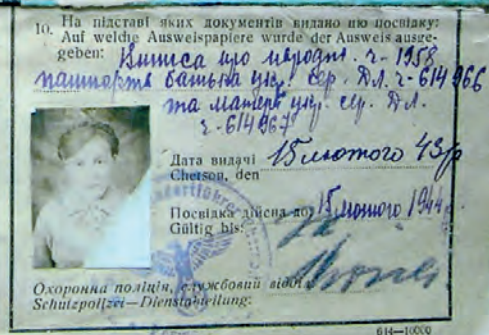 10. На підставі яких документів видано цю посвідку:
Auf welche Ausweispapiere wurde der Ausweis ausge-
geben: Виписа про народж. ч- 1958
пашпорта батька укр. сер. Дл. ч-614966
та матері укр. сер. Дл.
ч-614967
Дата видачі 15 лютого 43р
Cherson, den
Посвідка дійсна до: 15 лютого 1944
Gültig bis:
Охоронна поліція, службовий відділ
Schutzpolizei—Dienstabteilung:
614—10000